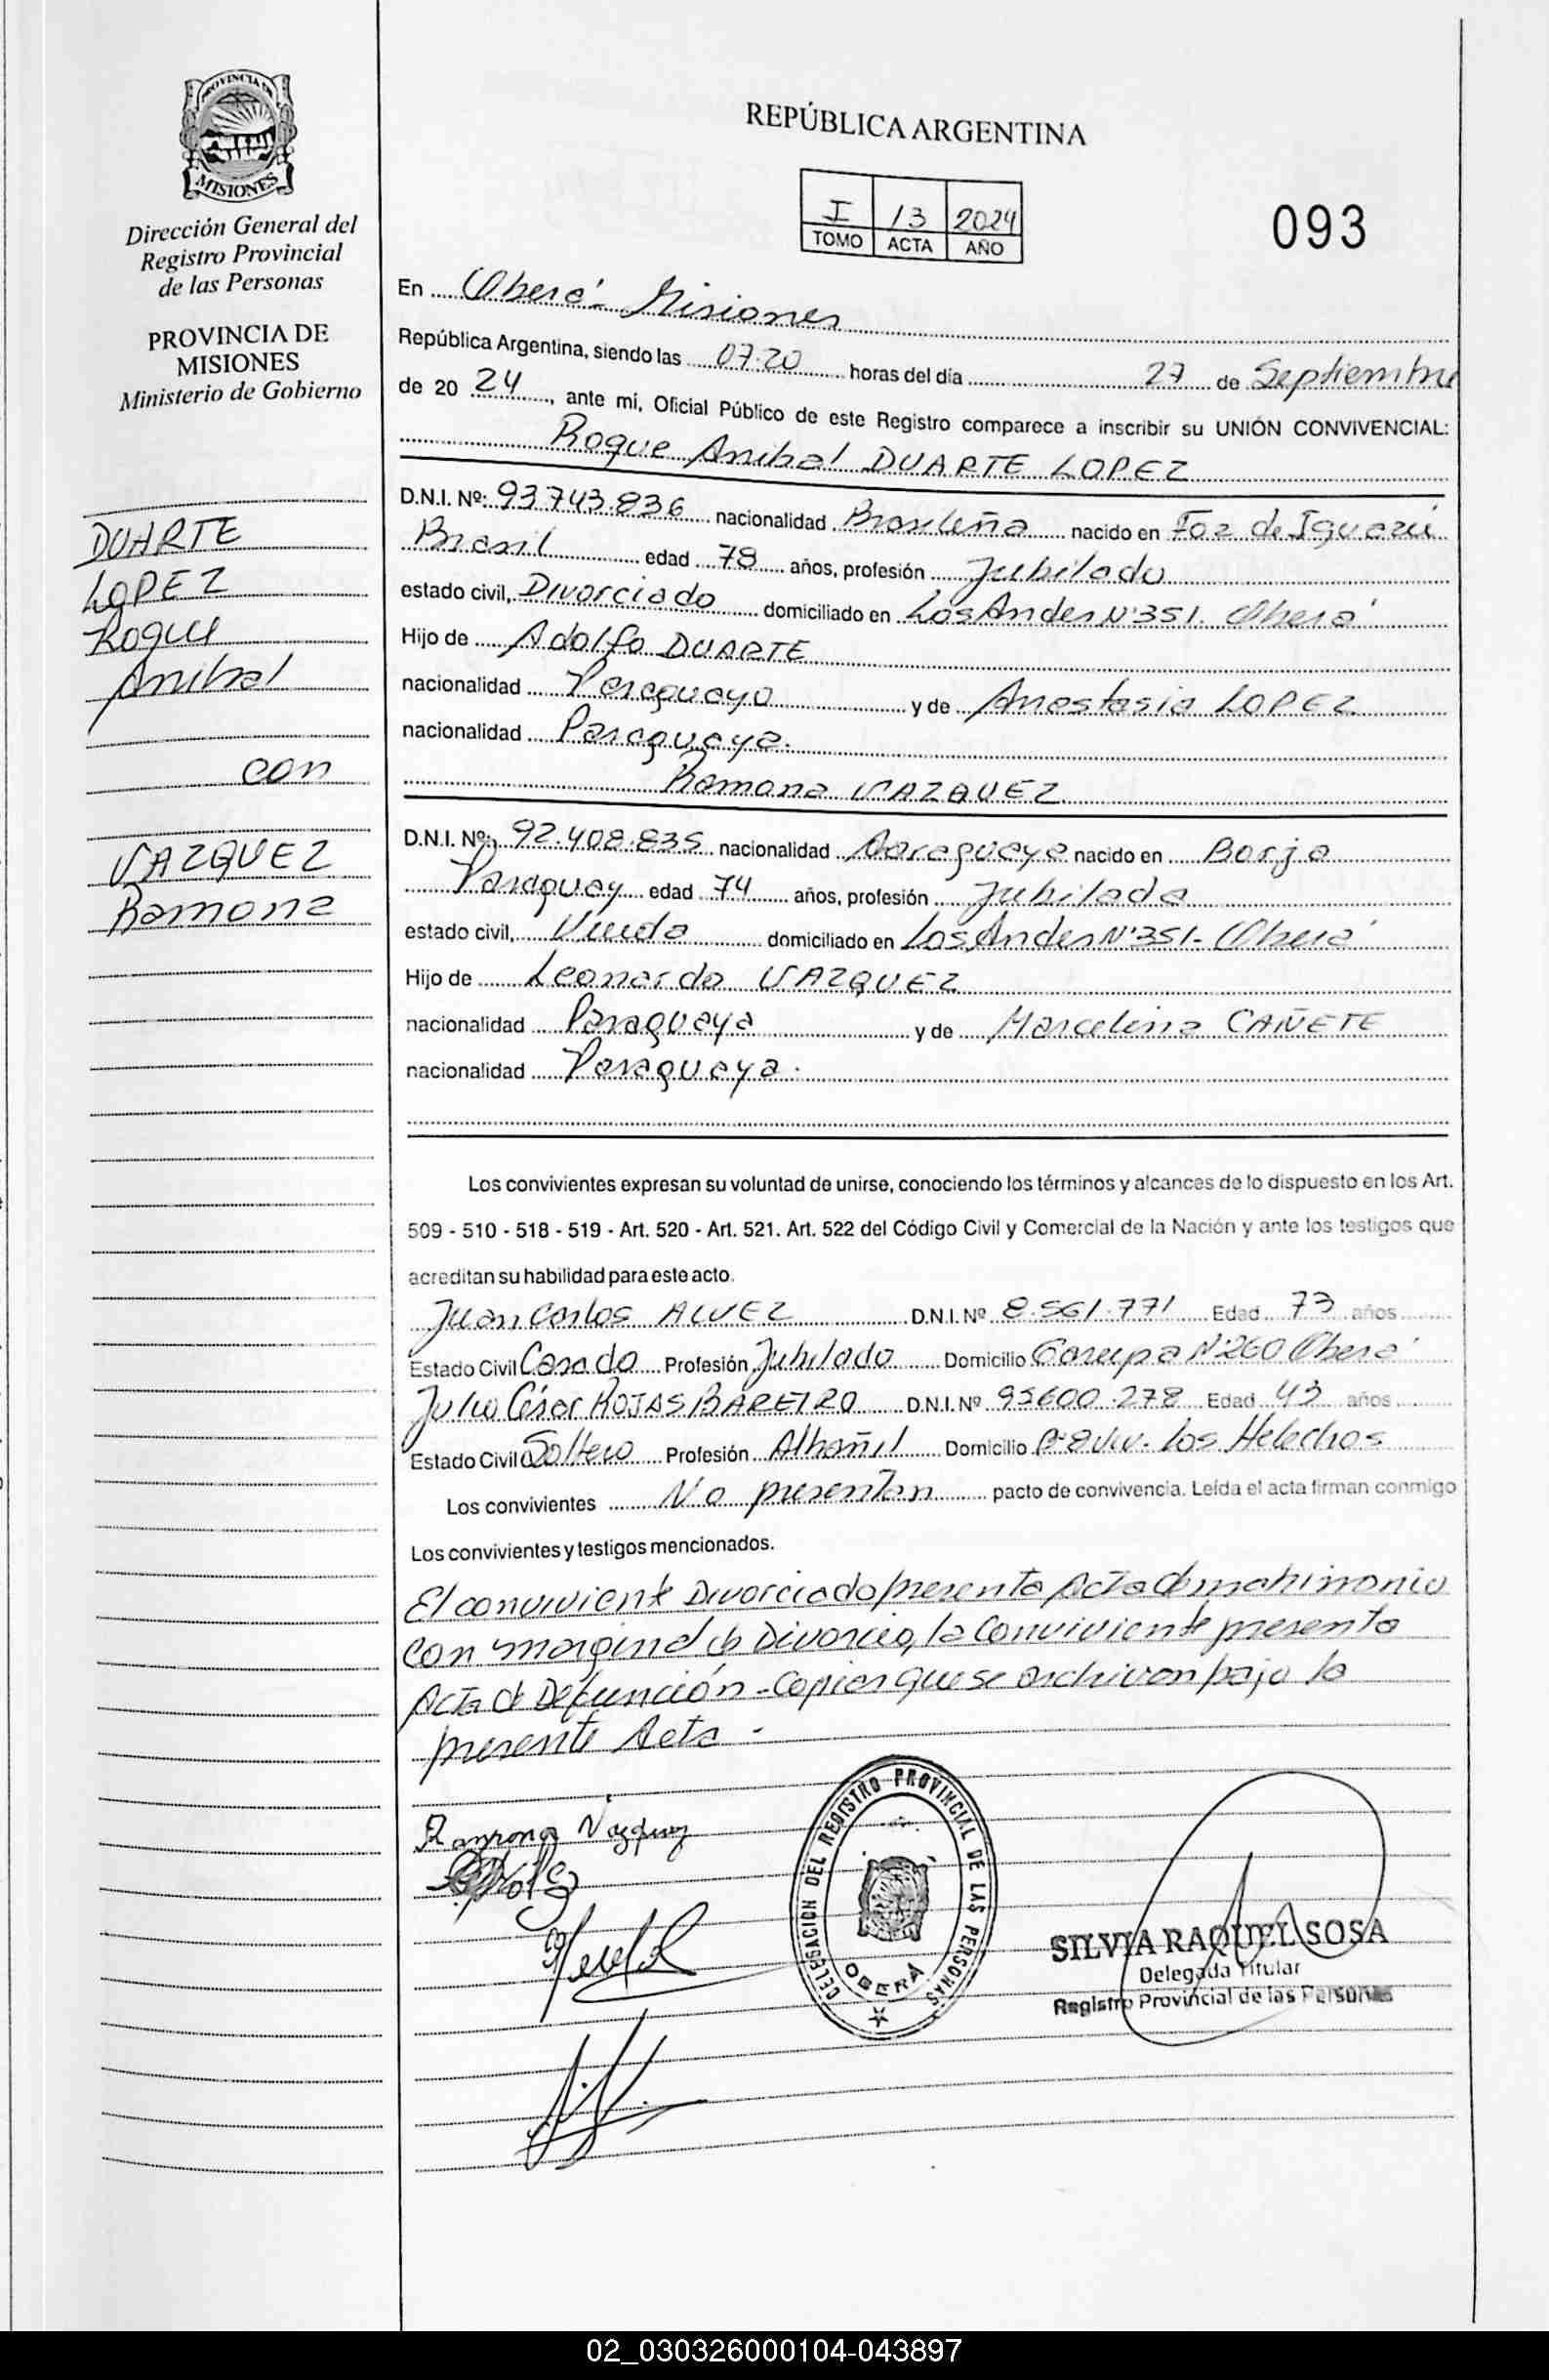 PROVINCIA DE
MISIONES
Dirección General del
Registro Provincial
de las Personas
PROVINCIA DE
MISIONES
Ministerio de Gobierno
DUARTE
LOPEZ
Roque
Anibal
con
VAZQUEZ
Ramona
REPÚBLICA ARGENTINA
I 13 2024
TOMO ACTA AÑO
093
En Oberá - Misiones
República Argentina, siendo las 07:20 horas del día 27 de Septiembre
de 20 24, ante mí, Oficial Público de este Registro comparece a inscribir su UNIÓN CONVIVENCIAL:
Roque Anibal DUARTE LOPEZ
D.N.I. Nº: 93.743.836 nacionalidad Brasileña nacido en Foz de Iguazú
Brasil edad 78 años, profesión Jubilado
estado civil, Divorciado domiciliado en Los Andes Nº351. Oberá
Hijo de Adolfo DUARTE
nacionalidad Paraguayo y de Anastasia LOPEZ
nacionalidad Paraguaya.
Ramona VAZQUEZ
D.N.I. Nº: 92.408.835 nacionalidad Paraguaya nacido en Borja
Paraguay edad 74 años, profesión Jubilada
estado civil, Viuda domiciliado en Los Andes Nº351- Oberá
Hijo de Leonardo VAZQUEZ
nacionalidad Paraguaya y de Marcelina CAÑETE
nacionalidad Paraguaya.
Los convivientes expresan su voluntad de unirse, conociendo los términos y alcances de lo dispuesto en los Art.
509 - 510 - 518 - 519 - Art. 520 - Art. 521. Art. 522 del Código Civil y Comercial de la Nación y ante los testigos que
acreditan su habilidad para este acto.
Juan Carlos ALVEZ D.N.I. Nº 8.561.771 Edad 73 años
Estado Civil Casado Profesión Jubilado Domicilio Garupa Nº260 Oberá
Julio César ROJAS BAREIRO D.N.I. Nº 95600.278 Edad 43 años
Estado Civil Soltero Profesión Albañil Domicilio Bº 8 Viv. Los Helechos
Los convivientes No presentan pacto de convivencia. Leída el acta firman conmigo
Los convivientes y testigos mencionados.
El conviviente Divorciado presenta Acta de matrimonio
con marginal de Divorcio, la Conviviente presenta
Acta de Defunción - Copias que se archivan bajo la
presente Acta -
Ramona Vazquez
DELEGACION DEL REGISTRO PROVINCIAL DE LAS PERSONAS
OBERÁ
SILVIA RAQUEL SOSA
Delegada Titular
Registro Provincial de las Personas
02_030326000104-043897